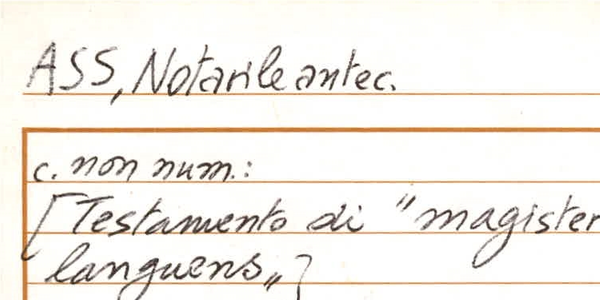 ASS, Notarile antec.
c. non num.:
[Testamento di "magister
languens"]